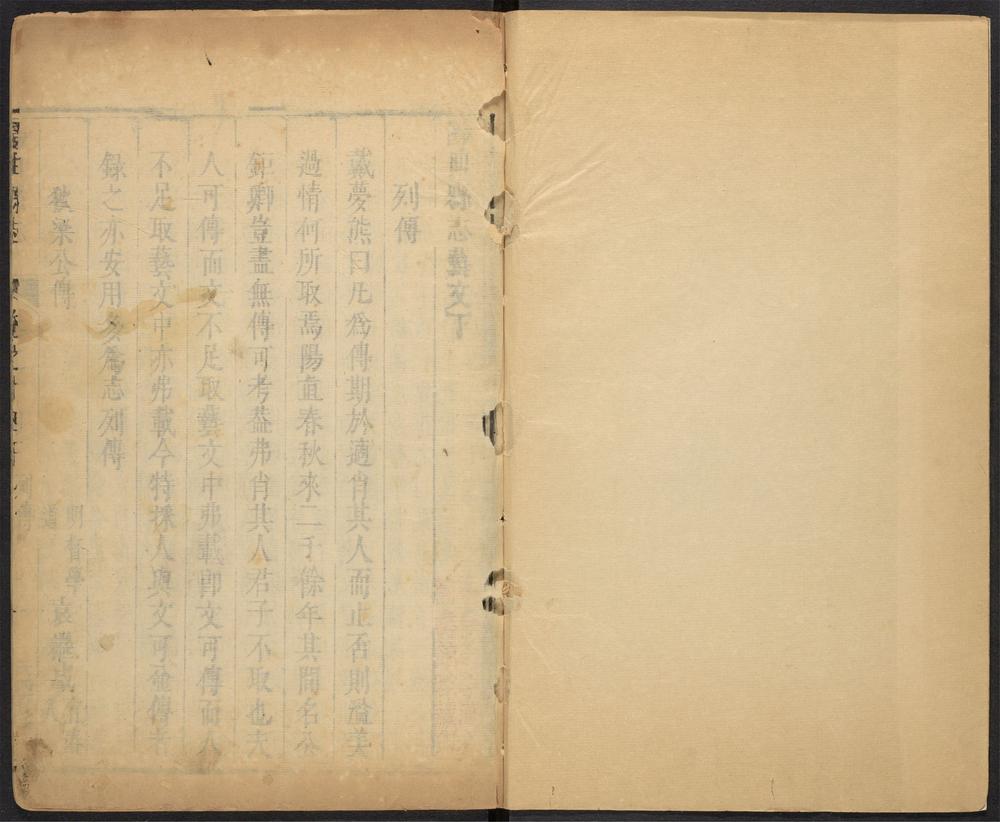 縣志藝文下
列傳
戴夢熊曰凡為傳期於適肖其人而止否則溢美
過情何所取焉陽直春秋來二千餘年其間名公
鉅卿豈盡無傳可考葢弗肖其人君子不取也夫
人可傳而文不足取藝文中弗載卽文可傳而人
不足取藝文中亦弗載今特採人與文可並傳者
録之亦安用多為志列傳
狄梁公傳
明督學
袁繼咸
宜春人